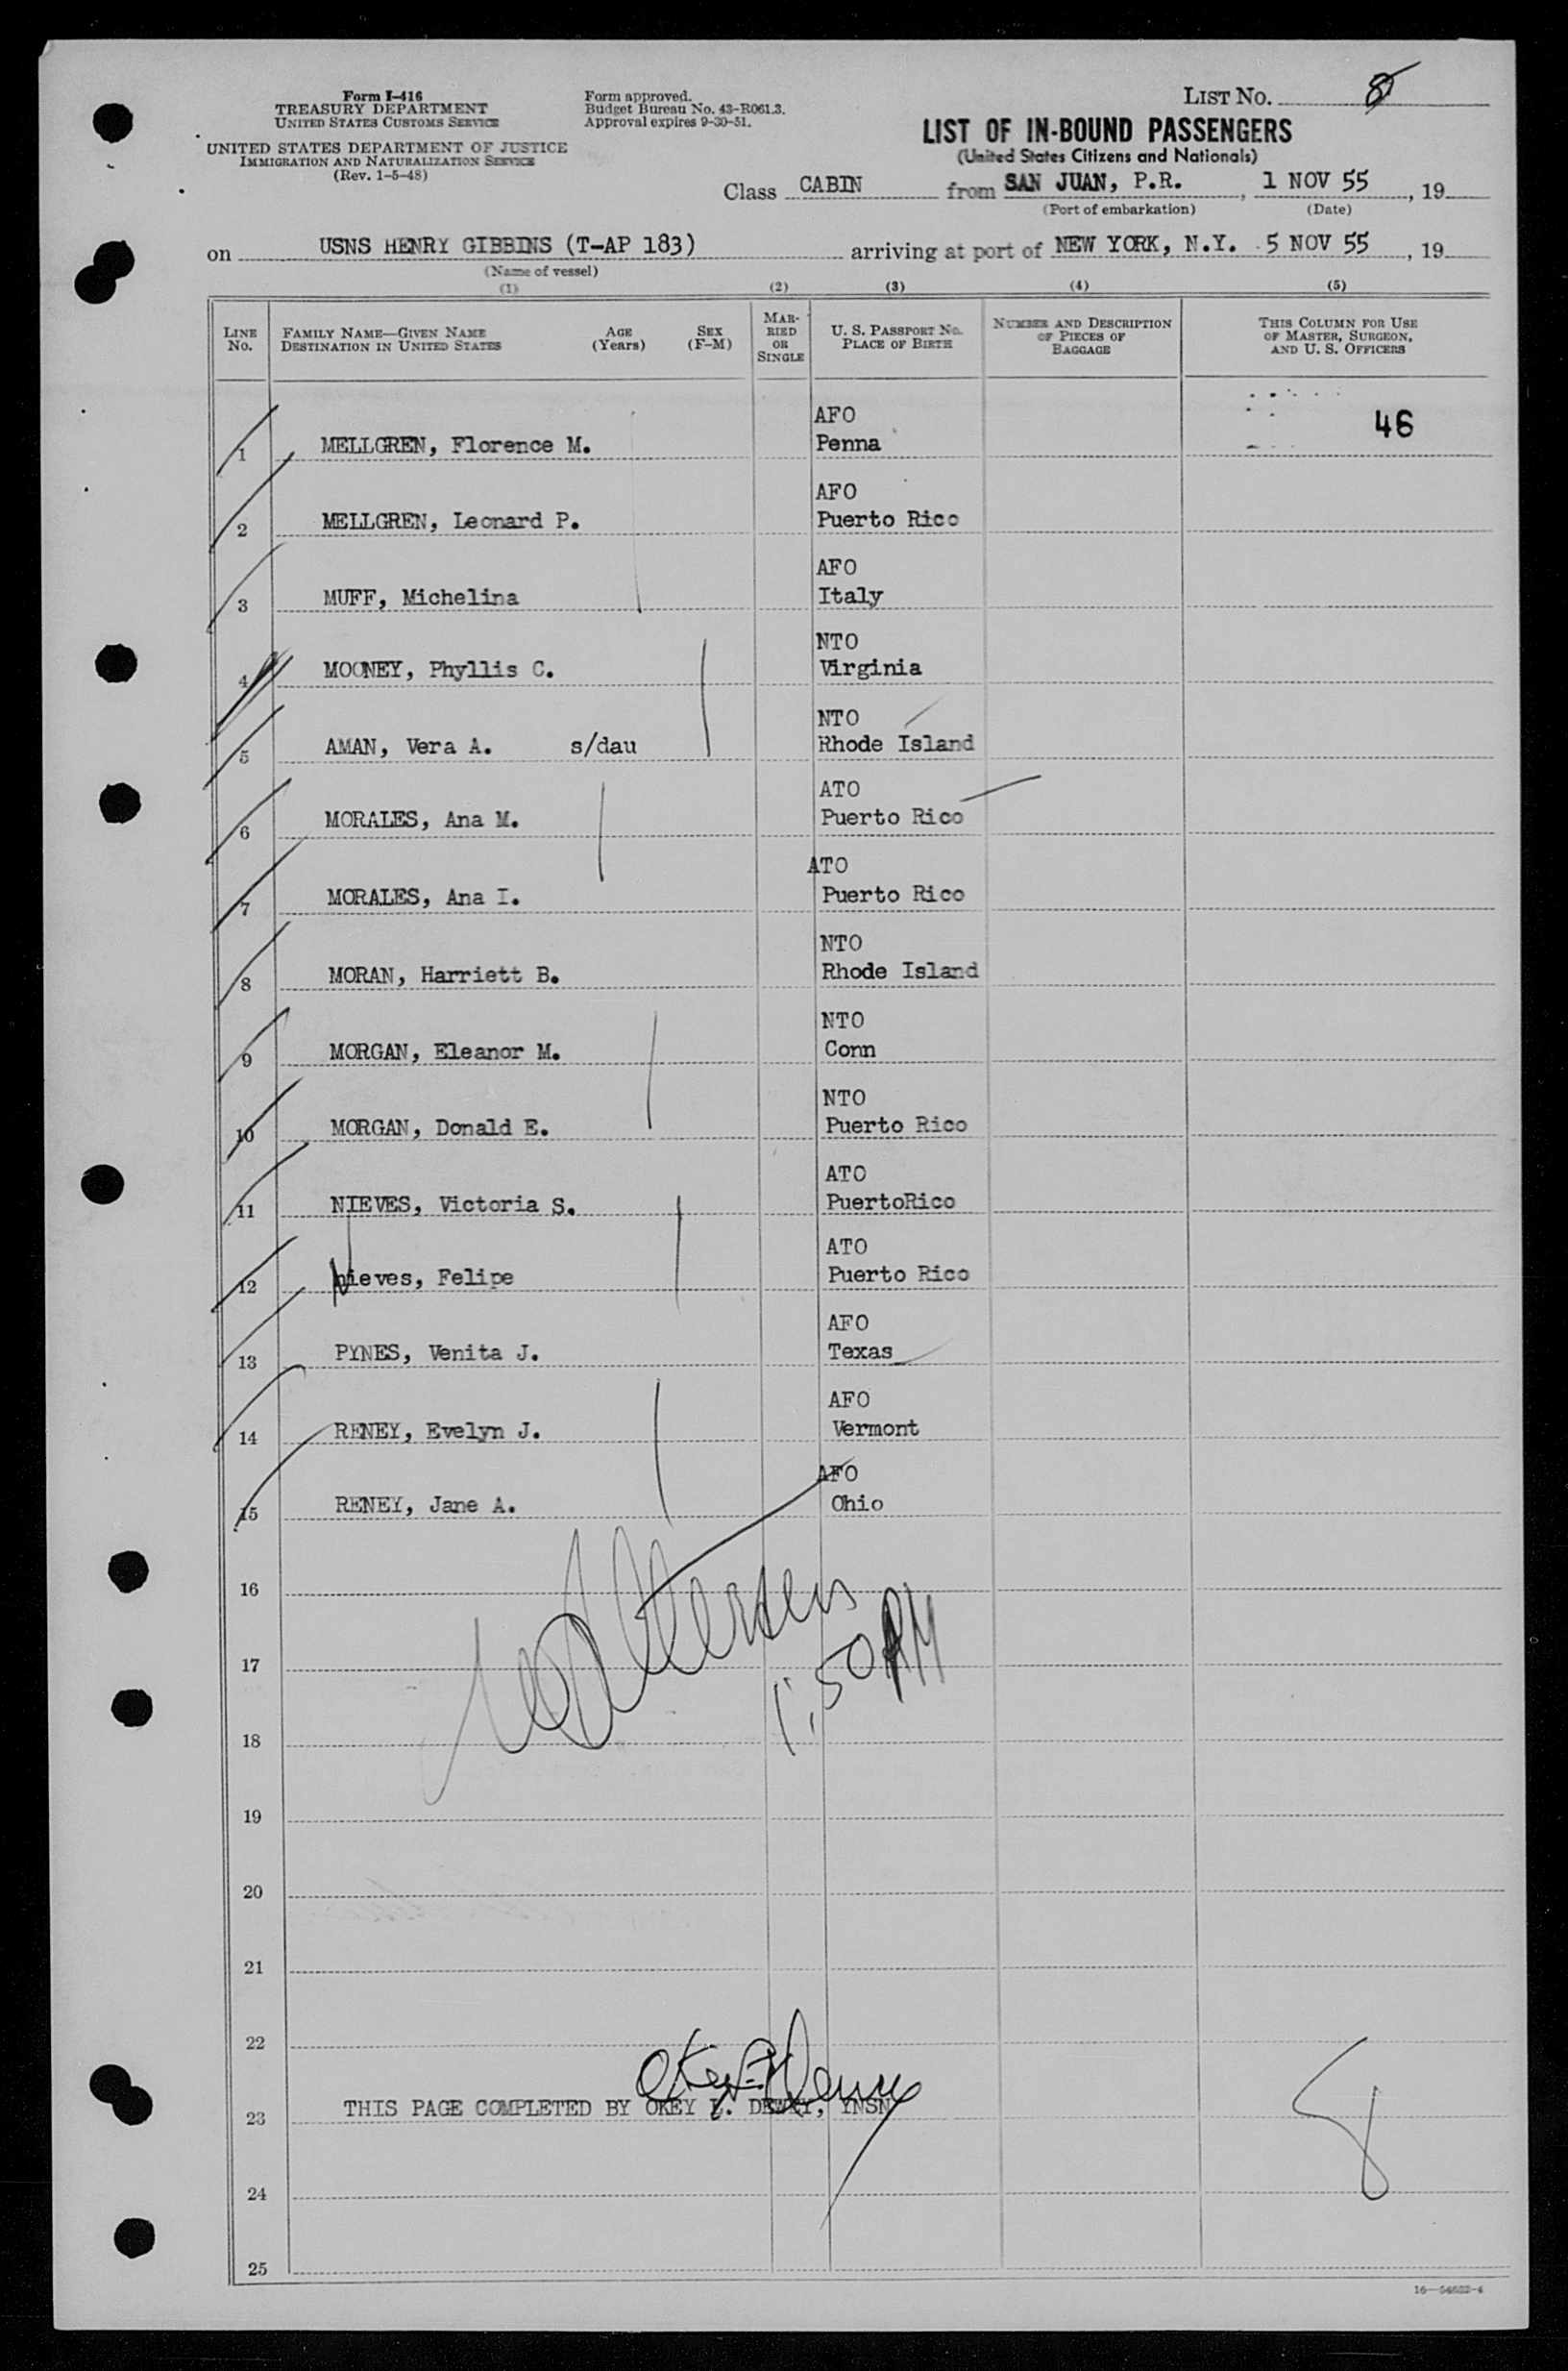 Form I-416
TREASURY DEPARTMENT
UNITED STATES CUSTOMS SERVICE
UNITED STATES DEPARTMENT OF JUSTICE
IMMIGRATION AND NATURALIZATION SERVICE
(Rev. 1-5-48)
Form approved.
Budget Bureau No. 43-R061.3.
Approval expires 9-30-51.
LIST NO. 8
LIST OF IN-BOUND PASSENGERS
(United States Citizens and Nationals)
Class CABIN from SAN JUAN, P.R. , 1 NOV 55 , 19
(Port of embarkation) (Date)
on USNS HENRY GIBBINS (T-AP 183) arriving at port of NEW YORK, N.Y. 5 NOV 55 , 19
(Name of vessel)
(1) (2) (3) (4) (5)
LINE No. FAMILY NAME—GIVEN NAME DESTINATION IN UNITED STATES AGE (Years) SEX (F-M) MARRIED OR SINGLE U. S. PASSPORT No. PLACE OF BIRTH NUMBER AND DESCRIPTION OF PIECES OF BAGGAGE THIS COLUMN FOR USE OF MASTER, SURGEON, AND U. S. OFFICERS
AFO 46
1 MELLGREN, Florence M. Penna
AFO
2 MELLGREN, Leonard P. Puerto Rico
AFO
3 MUFF, Michelina Italy
NTO
4 MOONEY, Phyllis C. Virginia
NTO
5 AMAN, Vera A. s/dau Rhode Island
ATO
6 MORALES, Ana M. Puerto Rico
ATO
7 MORALES, Ana I. Puerto Rico
NTO
8 MORAN, Harriett B. Rhode Island
NTO
9 MORGAN, Eleanor M. Conn
NTO
10 MORGAN, Donald E. Puerto Rico
ATO
11 NIEVES, Victoria S. PuertoRico
ATO
12 Nieves, Felipe Puerto Rico
AFO
13 PYNES, Venita J. Texas
AFO
14 RENEY, Evelyn J. Vermont
AFO
15 RENEY, Jane A. Ohio
16
17 1:50 PM
18
19
20
21
22
23 THIS PAGE COMPLETED BY OKEY E. DEWEY, YNSN
8
24
25
16—54622-4